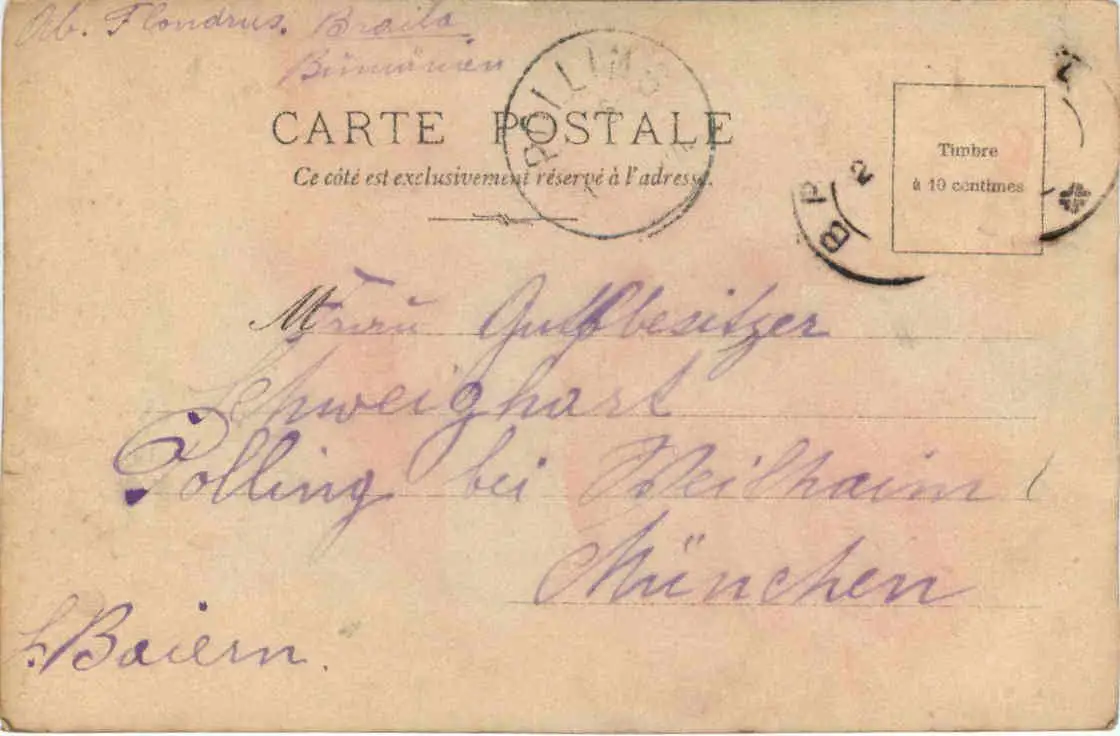 Flondrus. Braila
Rumänien
POLLING
CARTE POSTALE
Ce côté est exclusivement réservé à l'adresse.
Timbre
à 10 centimes
B P 2
Z
M
Frau Gutsbesitzer
Schweighart
Polling bei Weilhaim
München
Baiern.